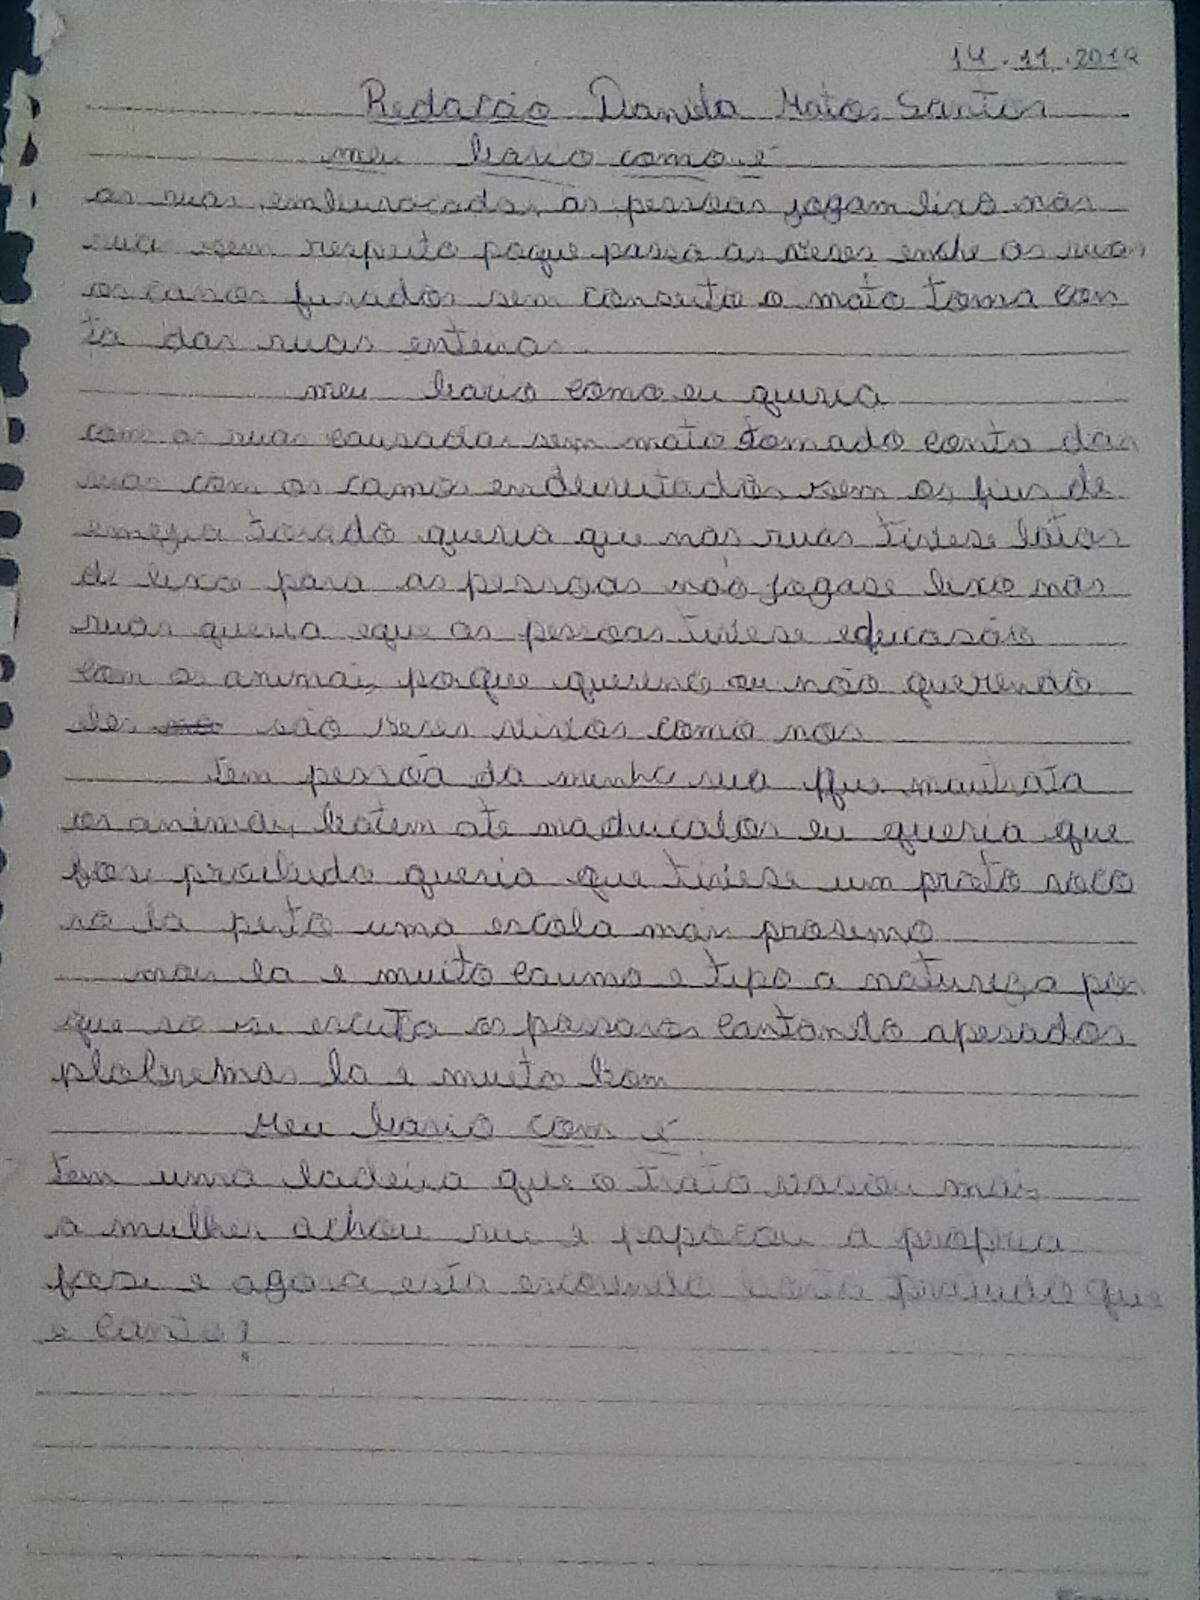 14.11.2018
Redação Danilo Matos Santos
meu bario como é
as ruas emburacadas, as pessoas jogam lixo nas
ruas sem respeito poque passa as veses enche as ruas
os canos furados sem conserto o mato toma con
ta das ruas enteiras
meu bario como eu queria
com as ruas causadas sem mato tomado conta das
ruas com os canos endireitados sem os fius de
emegia torado queria que nas ruas tivese latas
de lixo para as pessoas não jogase lixo nas
ruas queria eque as pessoas tivese educasão
com os animais poque quereno ou não querendo
les são seres vivos como nos
tem pessoa da minha rua que mautrata
os animais batem ate maducalos eu queria que
fose proibido queria que tivese um proto soco
ro la perto uma escola mais prosimo
mais la e muito caumo e tipo a natureza por
que so se escuta os passaros cantando apesados
plobremas la e muito bom
Meu bario com é
tem uma ladeira que o trato vasou mais
a mulher achou rui e papocou a propria
fose e agora esta escorendo que
e canto?